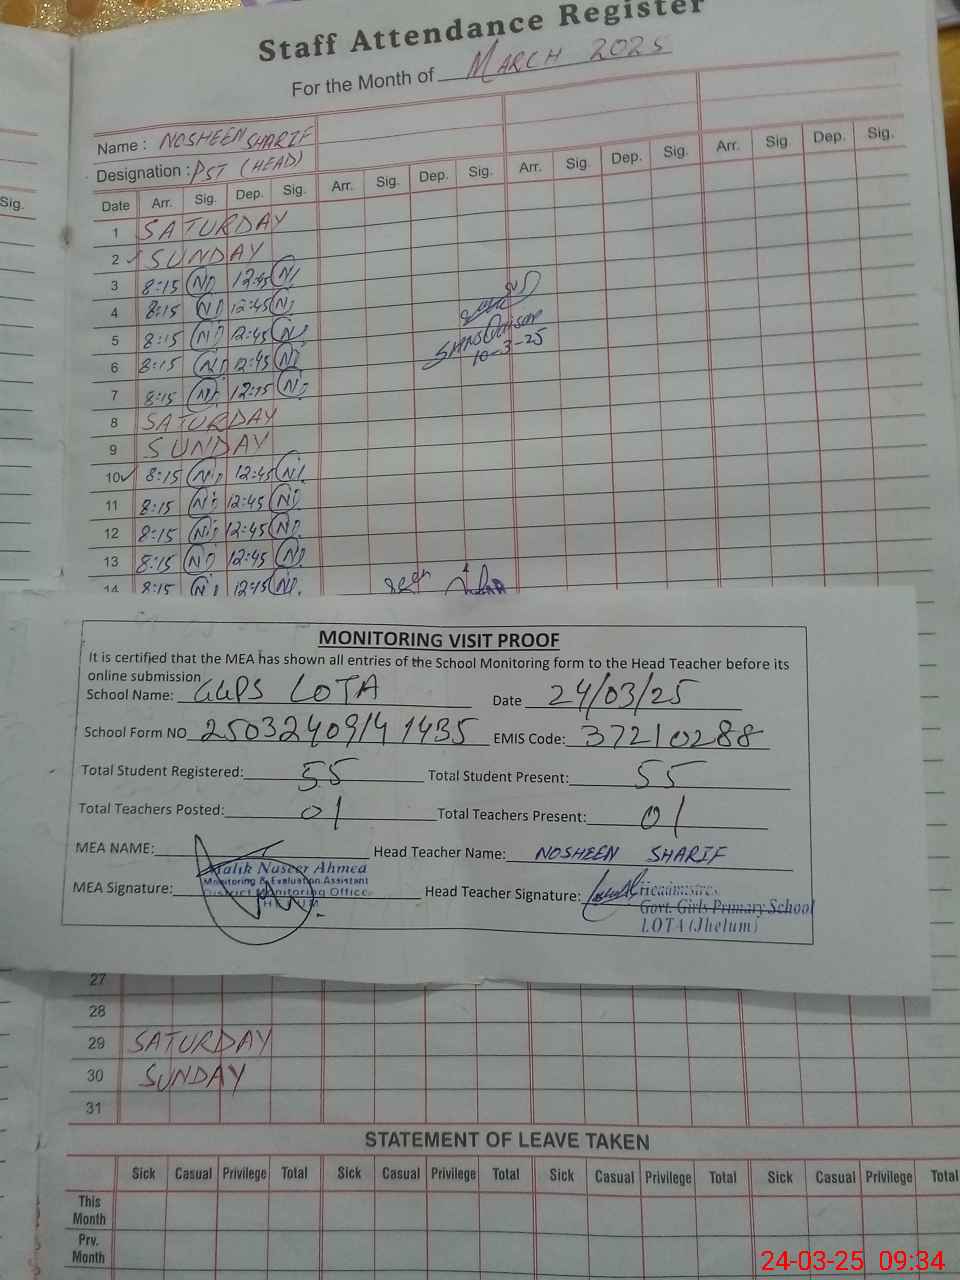 Staff Attendance Register
For the Month of MARCH 2025
Name : NOSHEEN SHARIF
Designation : PST (HEAD)
Sig.
Date Arr. Sig. Dep. Sig. Arr. Sig. Dep. Sig. Arr. Sig. Dep. Sig. Arr. Sig. Dep. Sig.
1 SATURDAY
2 SUNDAY
3 8:15 N 12:45 N
4 8:15 N 12:45 N
5 8:15 N 12:45 N
6 8:15 N 12:45 N
7 8:15 N 12:15 N
8 SATURDAY
9 SUNDAY
10 8:15 N 12:45 N
11 8:15 N 12:45 N
12 8:15 N 12:45 N
13 8:15 N 12:45 N
14 8:15 N 12:15 N
10-3-25
seen
MONITORING VISIT PROOF
It is certified that the MEA has shown all entries of the School Monitoring form to the Head Teacher before its
online submission
School Name: GGPS LOTA Date 24/03/25
School Form NO 25032409141435 EMIS Code: 37210288
Total Student Registered: 55 Total Student Present: 55
Total Teachers Posted: 01 Total Teachers Present: 01
MEA NAME: Head Teacher Name: NOSHEEN SHARIF
Malik Naseer Ahmed
Monitoring & Evaluation Assistant
District Monitoring Office
JHELUM
MEA Signature: Head Teacher Signature:
Headmistress
Govt. Girls Primary School
LOTA (Jhelum)
27
28
29 SATURDAY
30 SUNDAY
31
STATEMENT OF LEAVE TAKEN
Sick Casual Privilege Total Sick Casual Privilege Total Sick Casual Privilege Total Sick Casual Privilege Total
This Month
Prv. Month
24-03-25 09:34